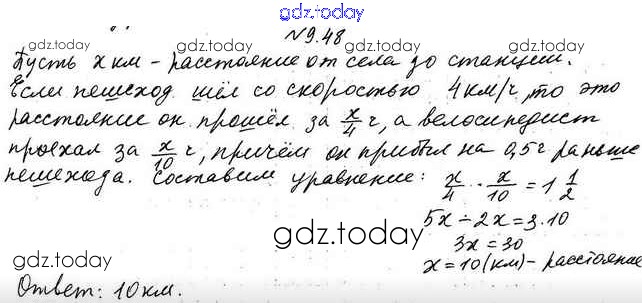 gdz.today
№9.48
gdz.today gdz.today gdz.today
Пусть x км - расстояние от села до станции.
Если пешеход шёл со скоростью 4 км/ч, то это
расстояние он прошёл за x/4 ч, а велосипедист
gdz.today gdz.today gdz.today
проехал за x/10 ч, причём он прибыл на 0,5 ч раньше
пешехода. Составим уравнение: x/4 - x/10 = 1 1/2
5x - 2x = 3·10
gdz.today gdz.today gdz.today
3x = 30
x = 10 (км) - расстояние
Ответ: 10 км.